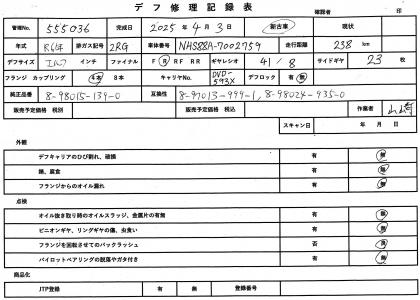 デフ修理記録表
確認者 印
管理No. 555036 完成日 2025年 4月 3日 新古車 現状
年式 R6年 排ガス記号 2RG 車体番号 NHS88A-7002759 走行距離 238 km
デフサイズ エルフ インチ ファイナル F R RF RR ギヤレシオ 41/8 サイドギヤ 23 枚
フランジ カップリング 4本 8本 キャリヤNo. DVD-593X デフロック 有 無
純正品番 8-98015-139-0 互換性 8-97013-999-1, 8-98024-935-0
販売予定価格 税別 販売予定価格 税込 作業者 山崎
スキャン日 年 月 日
外観
デフキャリアのひび割れ、破損 有 無
錆、腐食 有 無
フランジからのオイル漏れ 有 無
点検
オイル抜き取り時のオイルスラッジ、金属片の有無 有 無
ピニオンギヤ、リングギヤの傷、虫食い 有 無
フランジを回転させてのバックラッシュ 否 良
パイロットベアリングの脱落やガタ付き 有 無
商品化
JTP登録 有 無 登録番号